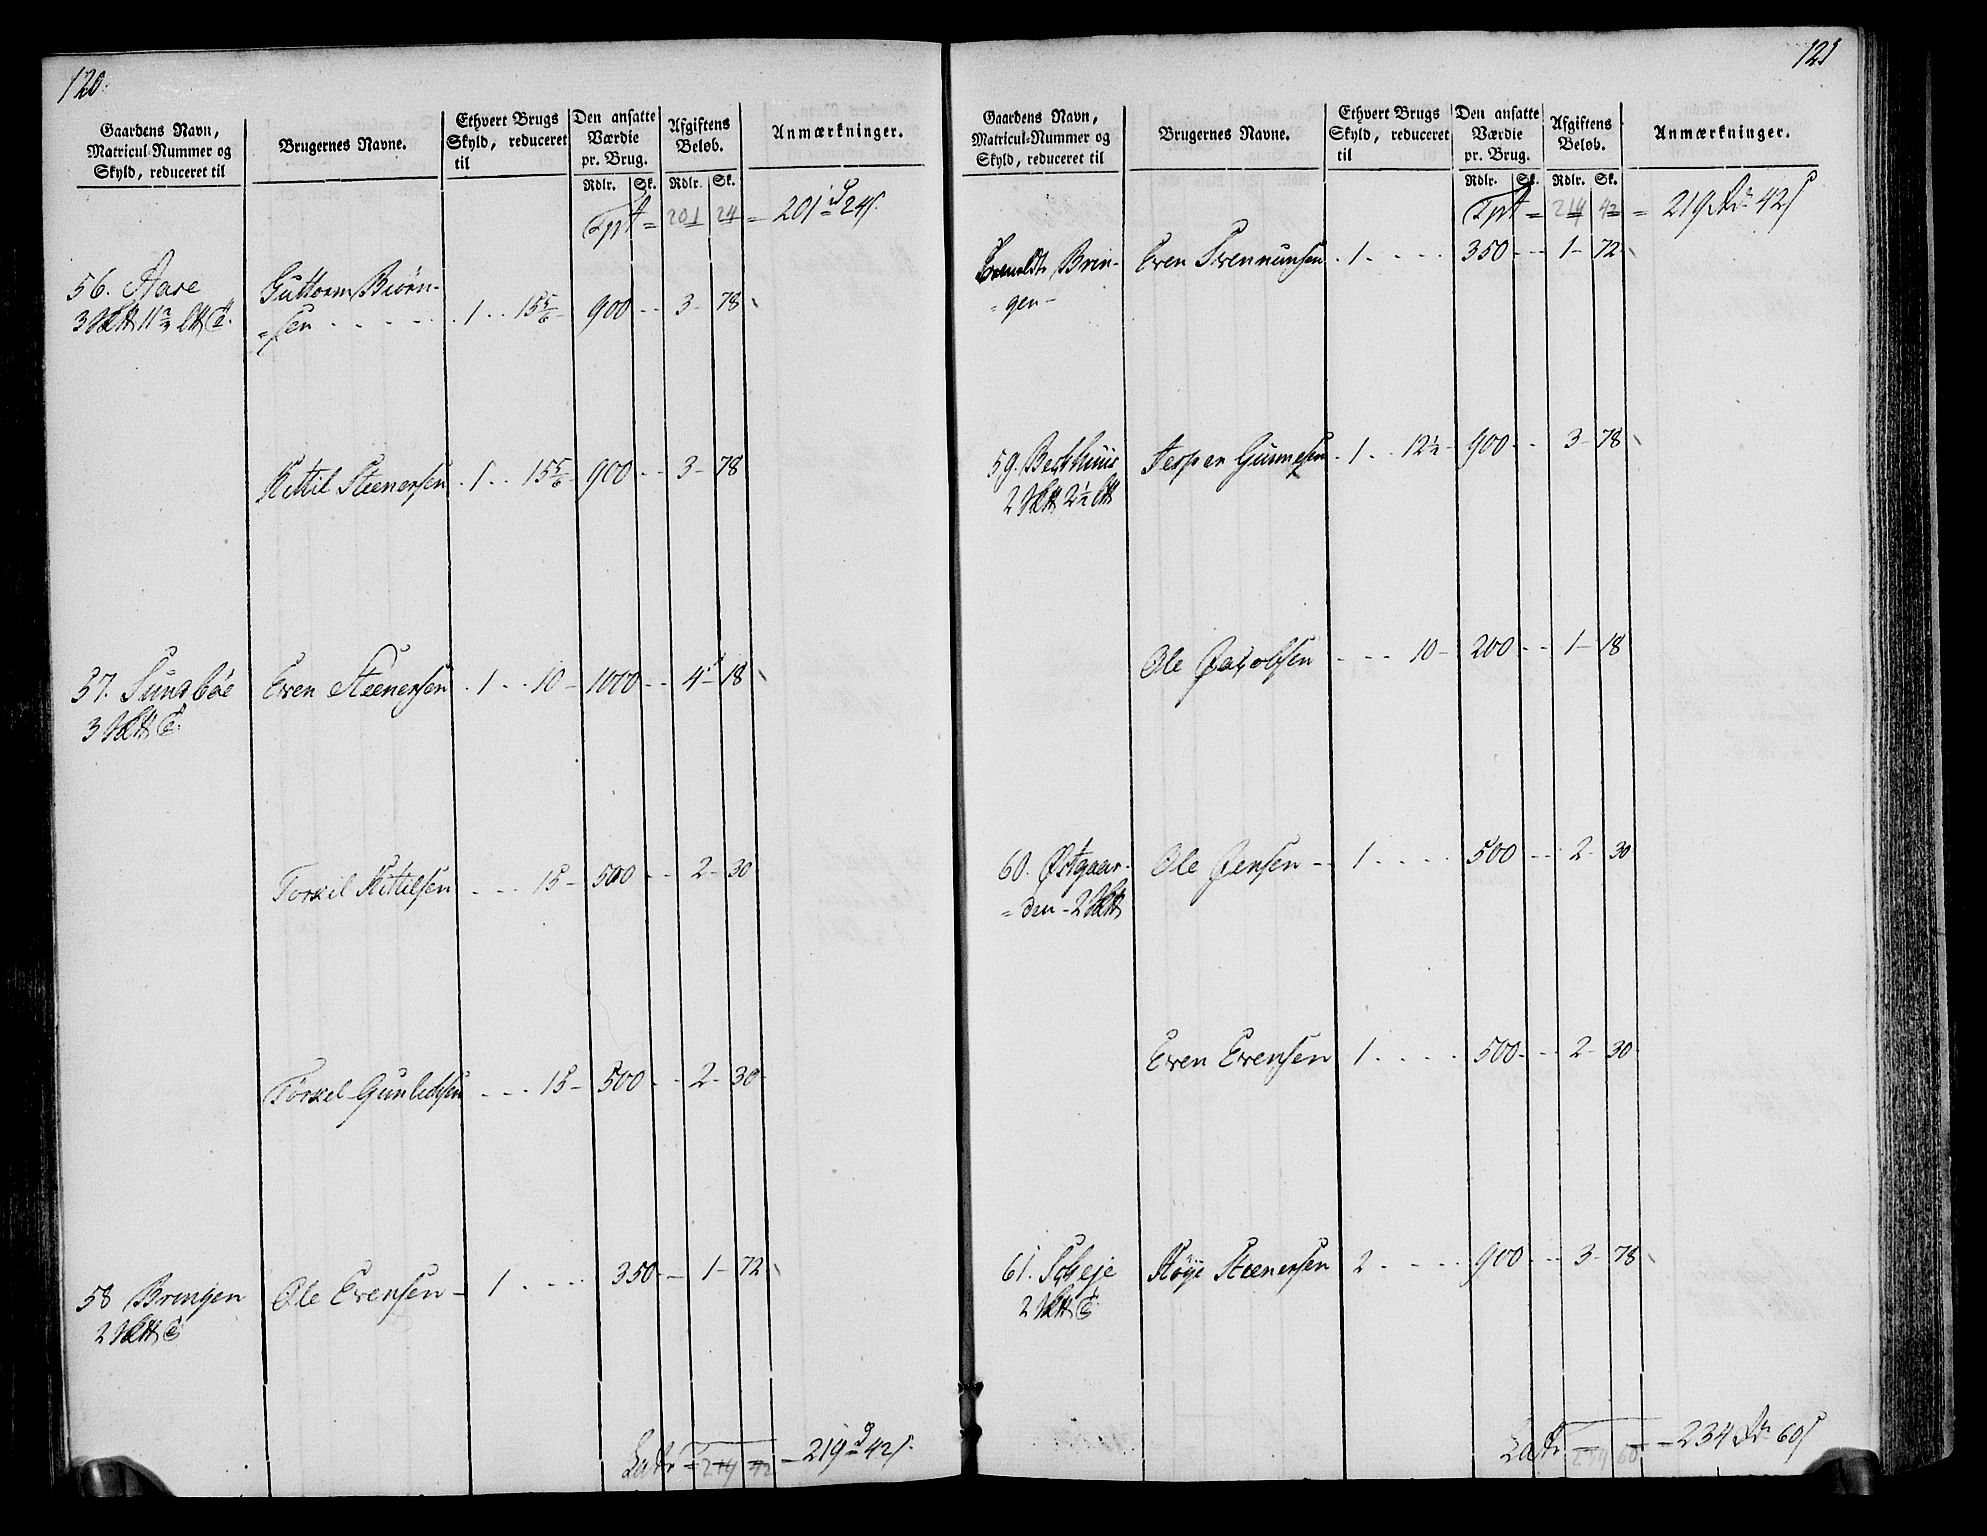 120.
Gaardens Navn,
Matricul-Nummer og
Skyld, reduceret til
Brugernes Navne.
Ethvert Brugs
Skyld, reduceret
til
Den ansatte
Værdie
pr. Brug.
Rdlr. Sk.
Afgiftens
Beløb.
Rdlr. Sk.
Anmærkninger.
201 24 = 201 24
56. Aase
Guttorm Biørn-
=sen . . . . . 1 . . 15 5/6 - 900 - - 3 - 78
Kittil Steenersen . 1 . . 15 5/6 - 900 - - 3 - 78
57. Sundbøe
Even Steenersen . 1 . . 10 - 1000 - - 4 - 18
Torkil Kittilsen - - - 15 - 500 - - 2 - 30
Torkel Gunlechsen - - - 15 - 500 - - 2 - 30
58 Bringen
Ole Evensen - 1 . . . . 350 - - 1 - 72
Latr = 219 42 - 219 42
121
Gaardens Navn,
Matricul-Nummer og
Skyld, reduceret til
Brugernes Navne.
Ethvert Brugs
Skyld, reduceret
til
Den ansatte
Værdie
pr. Brug.
Rdlr. Sk.
Afgiftens
Beløb.
Rdlr. Sk.
Anmærkninger.
219 42 = 219 Rdr 42
Brin-
=gen -
Even Svennunsen . 1 . . . . 350 - - 1 - 72
59. Berthuus
Jesper Gunnesen . 1 . . 12 1/2 - 900 - - 3 - 78
Ole Jacobsen - - - 10 - 200 - - 1 - 18
60. Østgaar-
=den - 2
Ole Jensen - - 1 . . . . 500 - - 2 - 30
Even Evensen 1 . . . . 500 - - 2 - 30
61. Scheje
Høye Steenersen 2 . . . . 900 - - 3 - 78
Latr - 234 Rdr 60